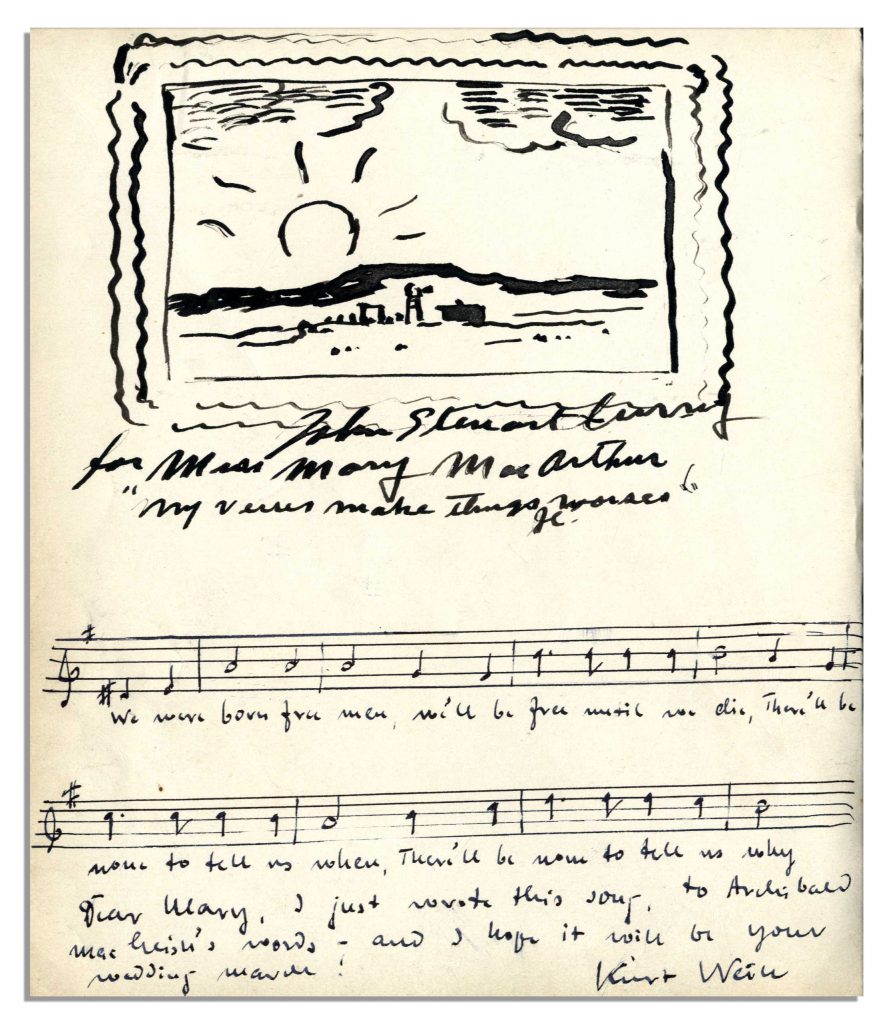 John Steuart Curry
for Miss Mary MacArthur
"My verses make things worses"
JC.
We were born free men, we'll be free until we die, There'll be
none to tell us when, There'll be none to tell us why
Dear Mary, I just wrote this song, to Archibald
MacLeish's words – and I hope it will be your
wedding march!
Kurt Weill